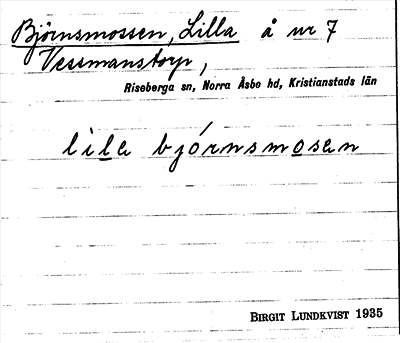 Björnsmossen, Lilla å nr 7
Vessmanstorp,
Riseberga sn, Norra Åsbo hd, Kristianstads län
lila bjórnsmosen
BIRGIT LUNDKVIST 1935